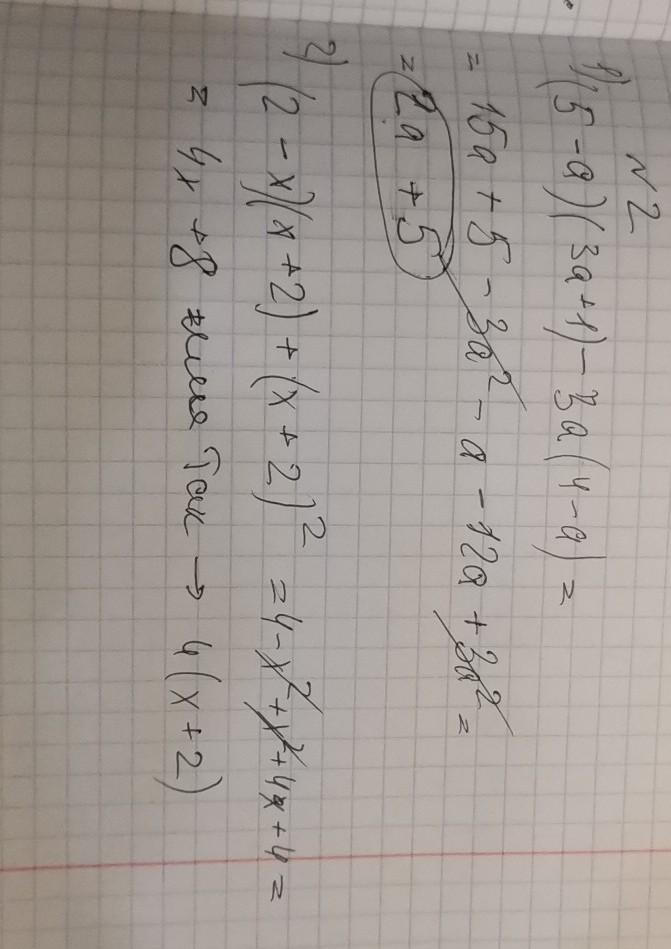 N2
1) (5-a)(3a+1)-3a(4-a)=
= 15a+5-3a²-a-12a+3a²=
= 2a+5
2) (2-x)(x+2)+(x+2)² =4-x²+x²+4x+4=
= 4x+8 или так → 4(x+2)